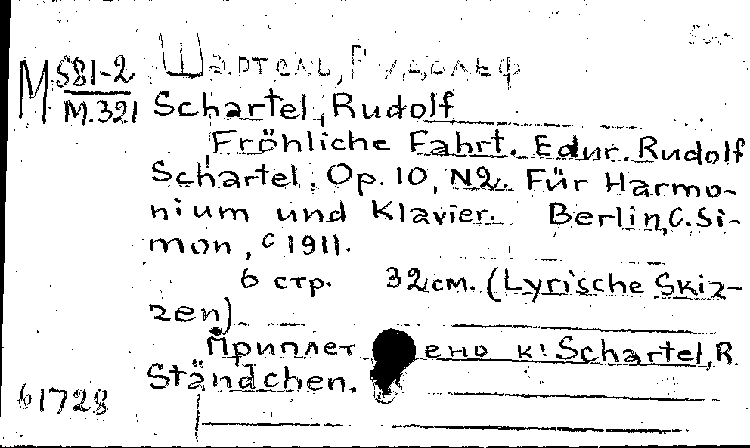 Шартель, Рудольф
М 581-2
М.321
Schartel, Rudolf
Fröhliche Fahrt. Edur. Rudolf
Schartel, Op. 10, N2. Für Harmo-
nium und Klavier. Berlin, C. Si-
mon, c 1911.
6 стр. 32 см. (Lyrische Skiz-
zen)
Приплетено к: Schartel, R.
Ständchen.
61728